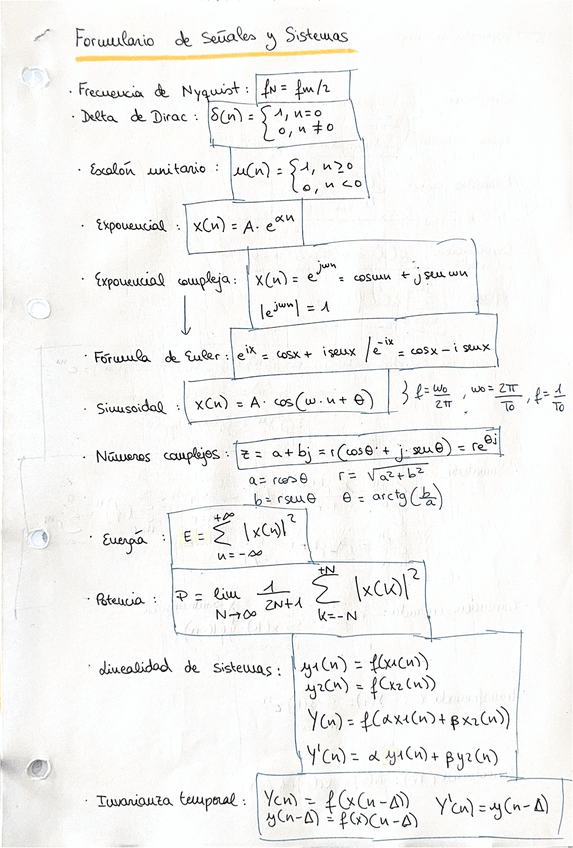 Formulario de Señales y Sistemas
· Frecuencia de Nyquist: fN = fm/2
· Delta de Dirac: δ(n) = { 1, n=0
0, n≠0
· Escalón unitario: u(n) = { 1, n≥0
0, n<0
· Exponencial: x(n) = A· e^αn
· Exponencial compleja: x(n) = e^jωn = cosωn + j senωn
|e^jωn| = 1
· Fórmula de Euler: e^ix = cosx + i senx / e^-ix = cosx - i senx
· Sinusoidal: x(n) = A· cos(ω·n + θ) } f = ω0/2π, ω0 = 2π/T0, f = 1/T0
· Números complejos: z = a + bj = r(cosθ + j·senθ) = re^θj
a = rcosθ r = √a²+b²
b = rsenθ θ = arctg(b/a)
· Energía: E = +∞∑n=-∞ |x(n)|²
· Potencia: P = lim N→∞ 1/2N+1 +N∑k=-N |x(k)|²
· Linealidad de sistemas: y1(n) = f(x1(n))
y2(n) = f(x2(n))
Y(n) = f(αx1(n) + βx2(n))
Y'(n) = α y1(n) + βy2(n)
· Invarianza temporal: Y(n) = f(x(n-Δ)) Y'(n) = y(n-Δ)
y(n-Δ) = f(x)(n-Δ)